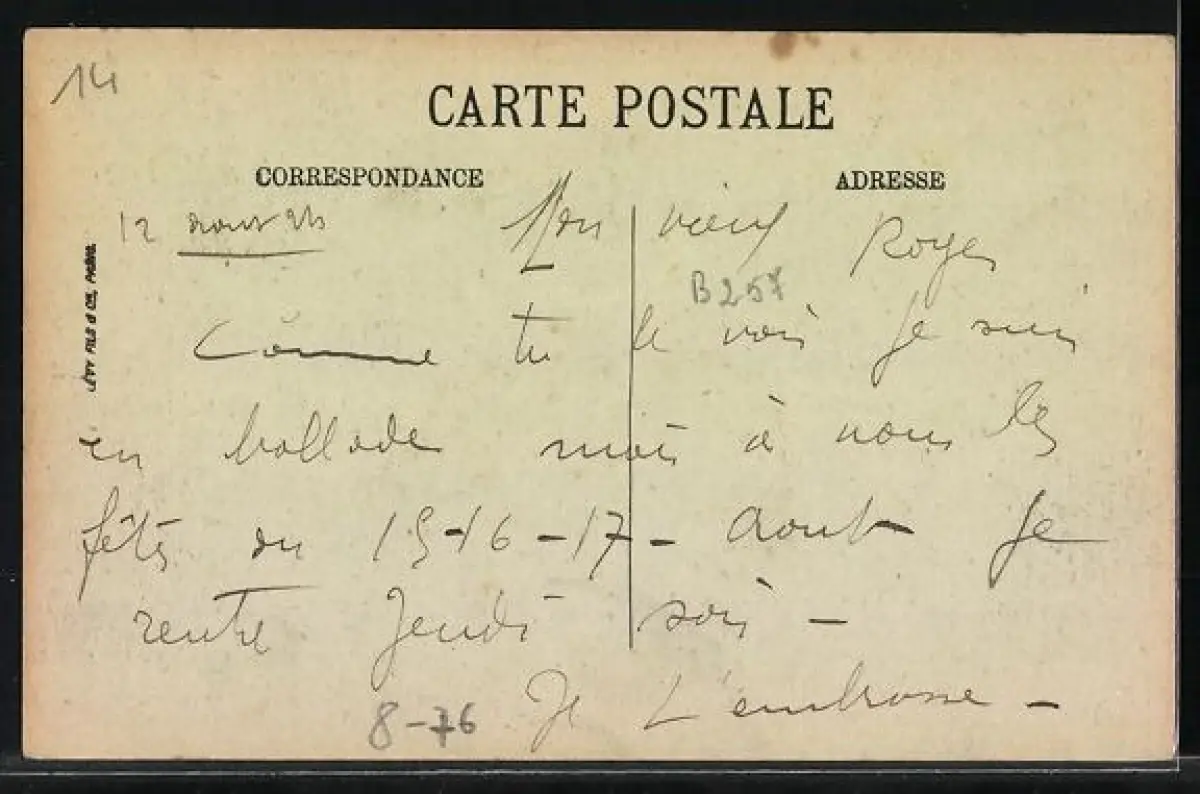 14
CARTE POSTALE
CORRESPONDANCE
ADRESSE
12 aout 24
Mon vieux Roger
B257
Comme tu le vois je suis
en ballade mais à nous les
fêtes du 15-16-17- aout je
rentre Jeudi soir -
8-76
Je t'embrasse -
LÉVY FILS & CIE, PARIS.